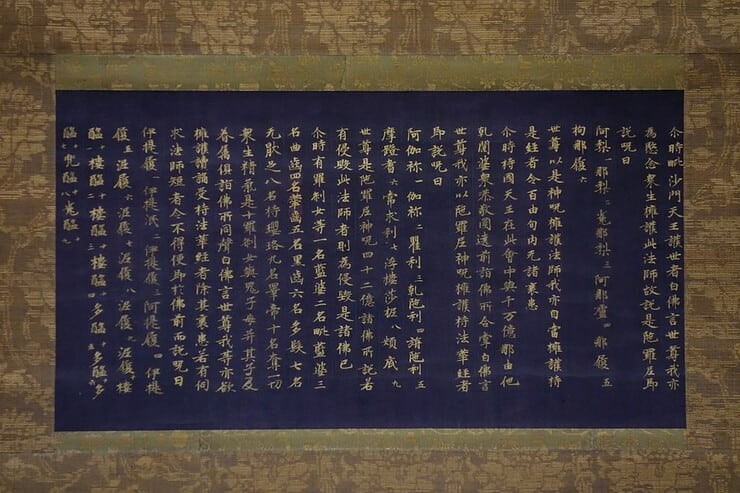 尒時毗沙門天王護世者白佛言世尊我亦
為愍念衆生擁護此法師故說是陁羅尼即
說呪曰
阿梨一那梨二㝹那梨三阿那盧四那履五
拘那履六
世尊以是神呪擁護法師我亦自當擁護持
是經者令百由旬内无諸衰患
尒時持國天王在此會中與千万億那由他
乹闥婆衆恭敬圍遶前詣佛所合掌白佛言
世尊我亦以陁羅尼神呪擁護持法華經者
即說呪曰
阿伽祢一伽祢二瞿利三乹陁利四旃陁利五
摩蹬耆六常求利七浮樓莎柅八頞底九
世尊是陁羅尼神呪四十二億諸佛所說若
有侵毀此法師者則為侵毀是諸佛已
尒時有羅刹女等一名藍婆二名毗藍婆三
名曲齒四名華齒五名黑齒六名多髮七名
无猒足八名持瓔珞九名睪帝十名奪一切
衆生精氣是十羅刹女與鬼子母并其子及
眷屬俱詣佛所同聲白佛言世尊我等亦欲
擁護讀誦受持法華經者除其衰患若有伺
求法師短者令不得便即於佛前而說呪曰
伊提履一伊提泯二伊提履三阿提履四伊提
履五泥履六泥履七泥履八泥履九泥履十樓
醯十一樓醯十二樓醯十三樓醯十四多醯十五多醯十六多
醯十七兜醯十八㝹醯十九